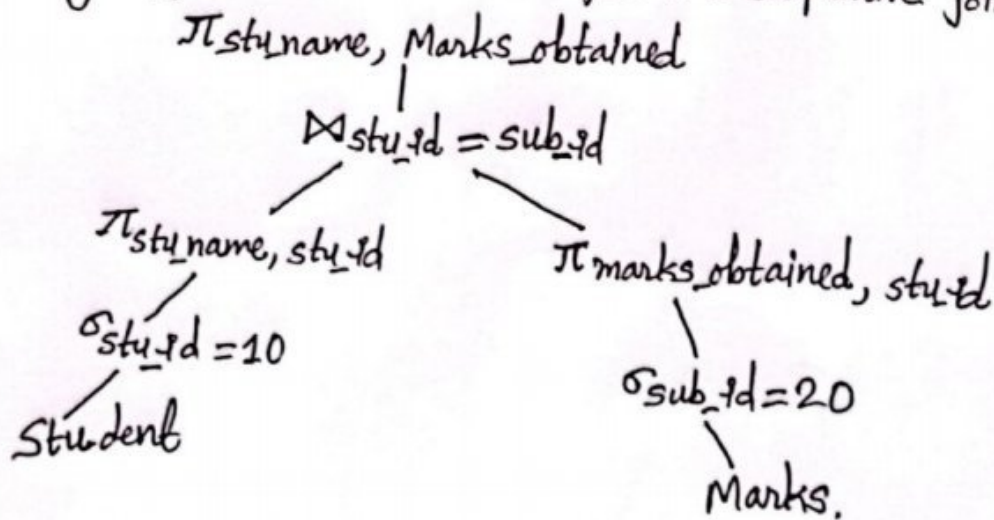 join
πstu_name, Marks_obtained
⋈stu_id = sub_id
πstu_name, stu_id
πmarks_obtained, stu_id
σstu_id = 10
σsub_id = 20
Student
Marks.